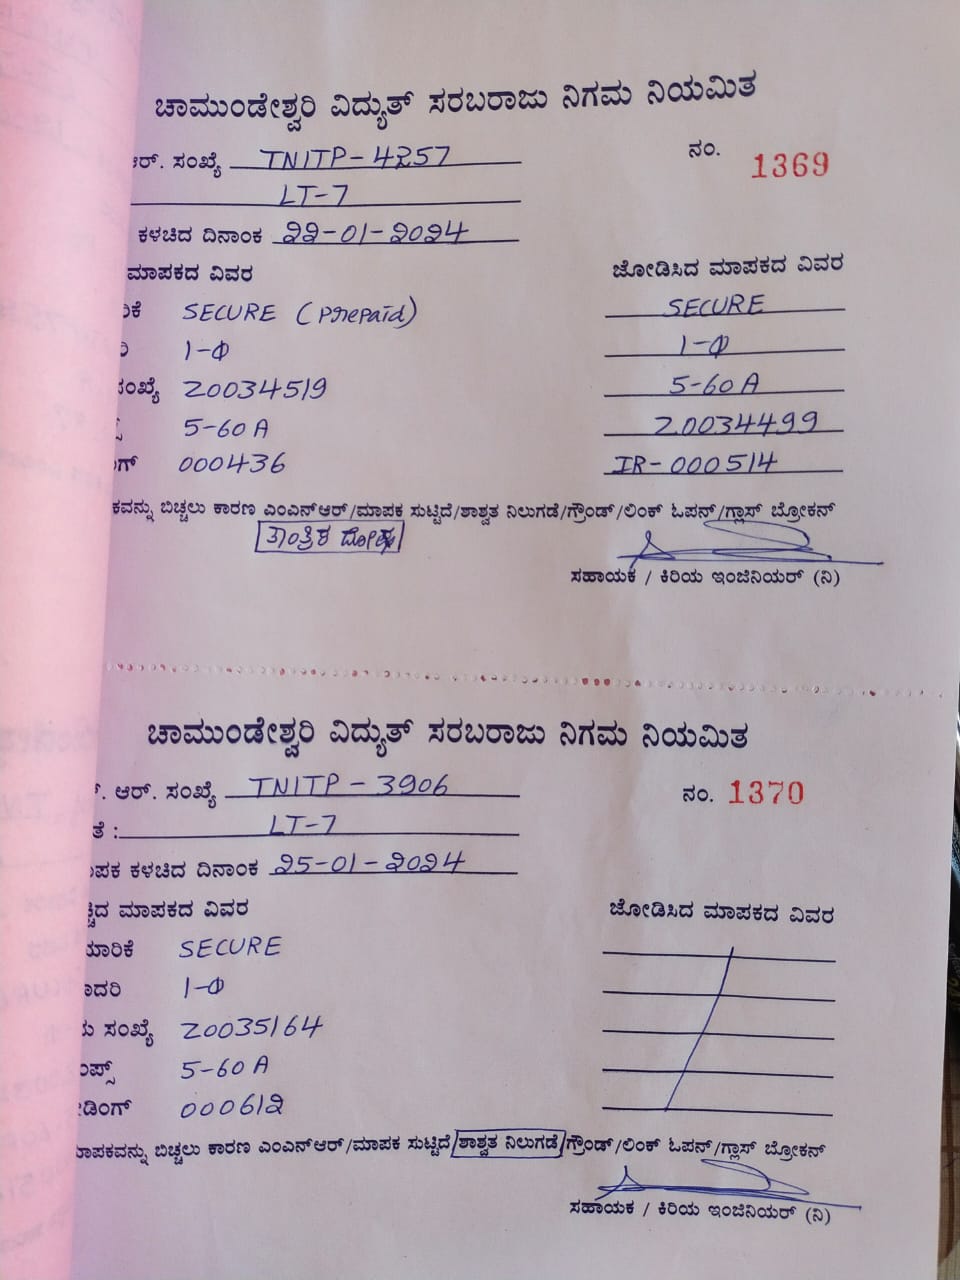 ಚಾಮುಂಡೇಶ್ವರಿ ವಿದ್ಯುತ್ ಸರಬರಾಜು ನಿಗಮ ನಿಯಮಿತ
ಆರ್. ಸಂಖ್ಯೆ TNITP-4257 ನಂ. 1369
LT-7
ಕಳಚಿದ ದಿನಾಂಕ 22-01-2024
ಮಾಪಕದ ವಿವರ ಜೋಡಿಸಿದ ಮಾಪಕದ ವಿವರ
SECURE (Prepaid) SECURE
1-Φ 1-Φ
ಸಂಖ್ಯೆ 20034519 5-60A
5-60A 20034499
000436 IR-000514
ಬಿಚ್ಚಲು ಕಾರಣ ಎಂಎನ್ಆರ್/ಮಾಪಕ ಸುಟ್ಟಿದೆ/ಶಾಶ್ವತ ನಿಲುಗಡೆ/ಗ್ರೌಂಡ್/ಲಿಂಕ್ ಓಪನ್/ಗ್ಲಾಸ್ ಬ್ರೋಕನ್
ತಾಂತ್ರಿಕ ದೋಷ
ಸಹಾಯಕ / ಕಿರಿಯ ಇಂಜಿನಿಯರ್ (ನಿ)
ಚಾಮುಂಡೇಶ್ವರಿ ವಿದ್ಯುತ್ ಸರಬರಾಜು ನಿಗಮ ನಿಯಮಿತ
ಆರ್. ಸಂಖ್ಯೆ TNITP-3906 ನಂ. 1370
LT-7
ಕಳಚಿದ ದಿನಾಂಕ 25-01-2024
ಮಾಪಕದ ವಿವರ ಜೋಡಿಸಿದ ಮಾಪಕದ ವಿವರ
SECURE
1-Φ
ಸಂಖ್ಯೆ 20035164
5-60A
000612
ಬಿಚ್ಚಲು ಕಾರಣ ಎಂಎನ್ಆರ್/ಮಾಪಕ ಸುಟ್ಟಿದೆ/ಶಾಶ್ವತ ನಿಲುಗಡೆ/ಗ್ರೌಂಡ್/ಲಿಂಕ್ ಓಪನ್/ಗ್ಲಾಸ್ ಬ್ರೋಕನ್
ಸಹಾಯಕ / ಕಿರಿಯ ಇಂಜಿನಿಯರ್ (ನಿ)